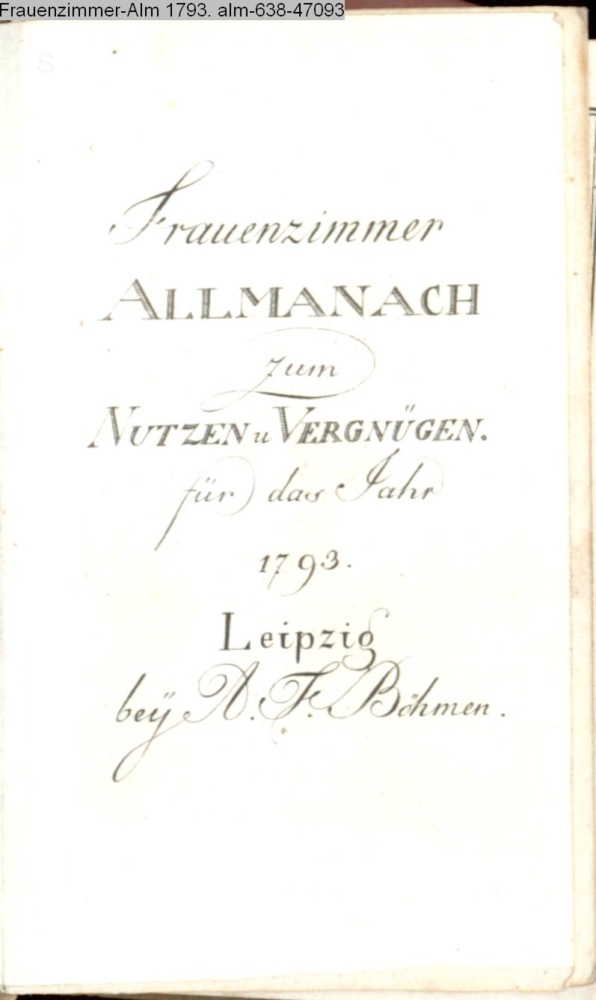 Frauenzimmer-Alm 1793. alm-638-47093
Frauenzimmer
ALLMANACH
zum
NUTZEN u VERGNÜGEN.
für das Jahr
1793.
Leipzig
beÿ A. F. Böhmen.